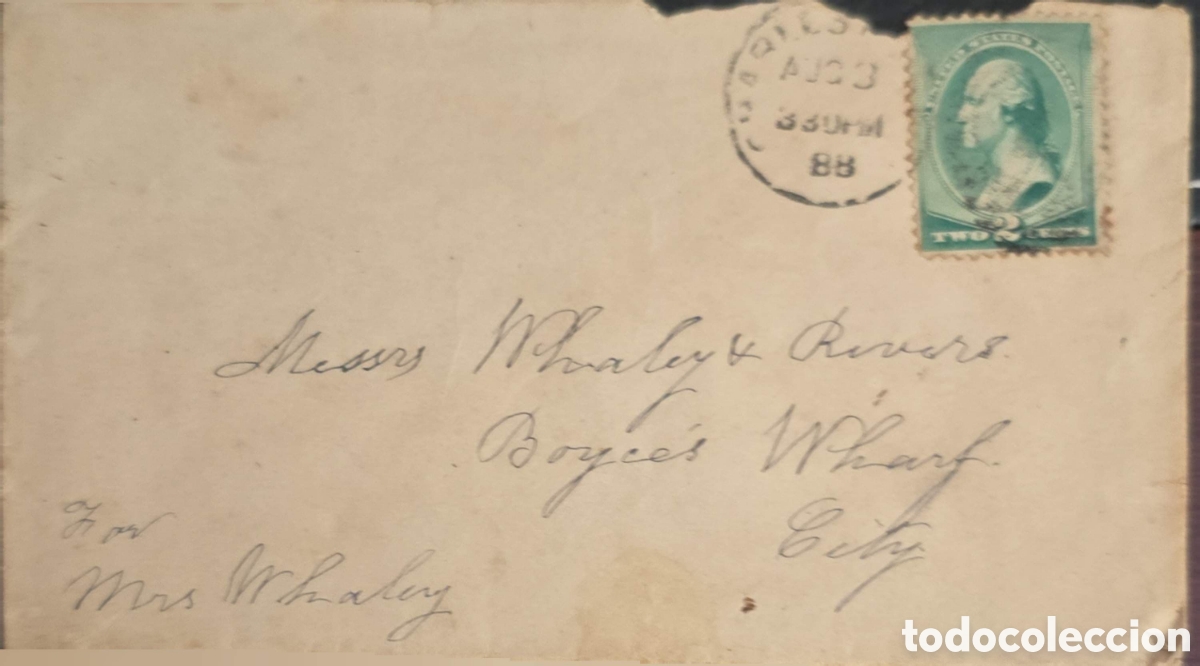 AUG 3
330PM
88
UNITED STATES POSTAGE
TWO 2 CENTS
Messrs Whaley & Rivers.
Boyce's Wharf.
City
For
Mrs Whaley
todocoleccion